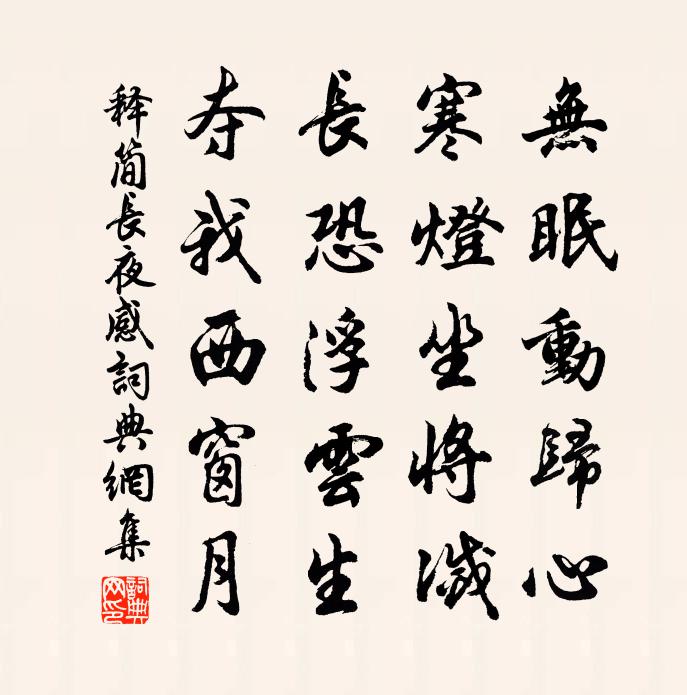 無眠動歸心
寒燈坐將滅
長恐浮雲生
夺我西窗月
释简長夜感詞典網集
詞典